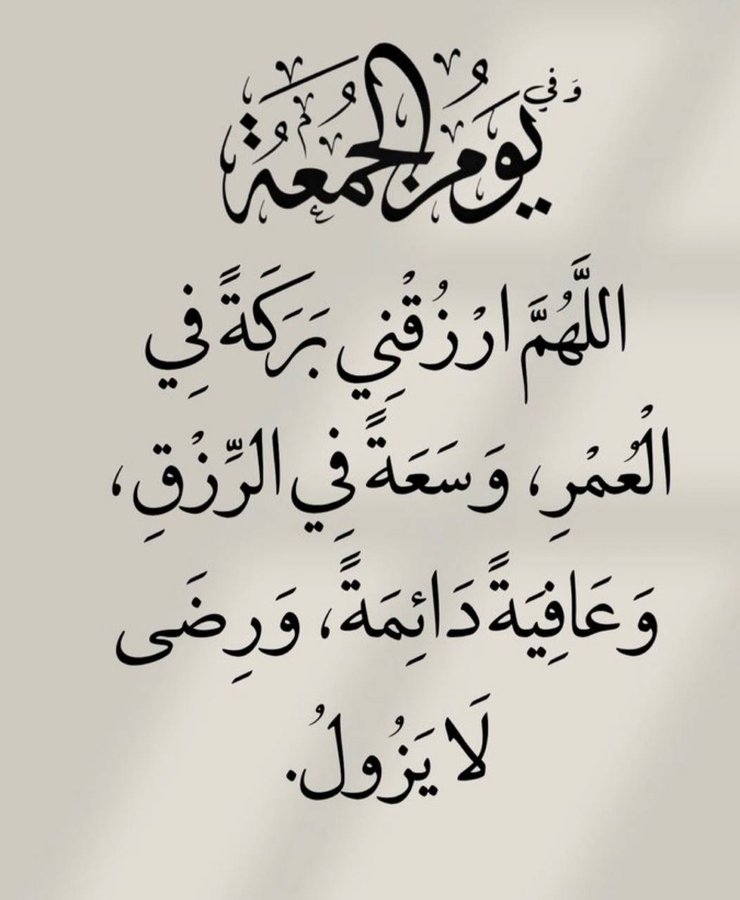 وَفي يَومُ الجُمُعَةُ
اللَّهُمَّ ارْزُقْنِي بَرَكَةً فِي
الْعُمْرِ، وَسَعَةً فِي الرِّزْقِ،
وَعَافِيَةً دَائِمَةً، وَرِضَى
لَا يَزُولُ.